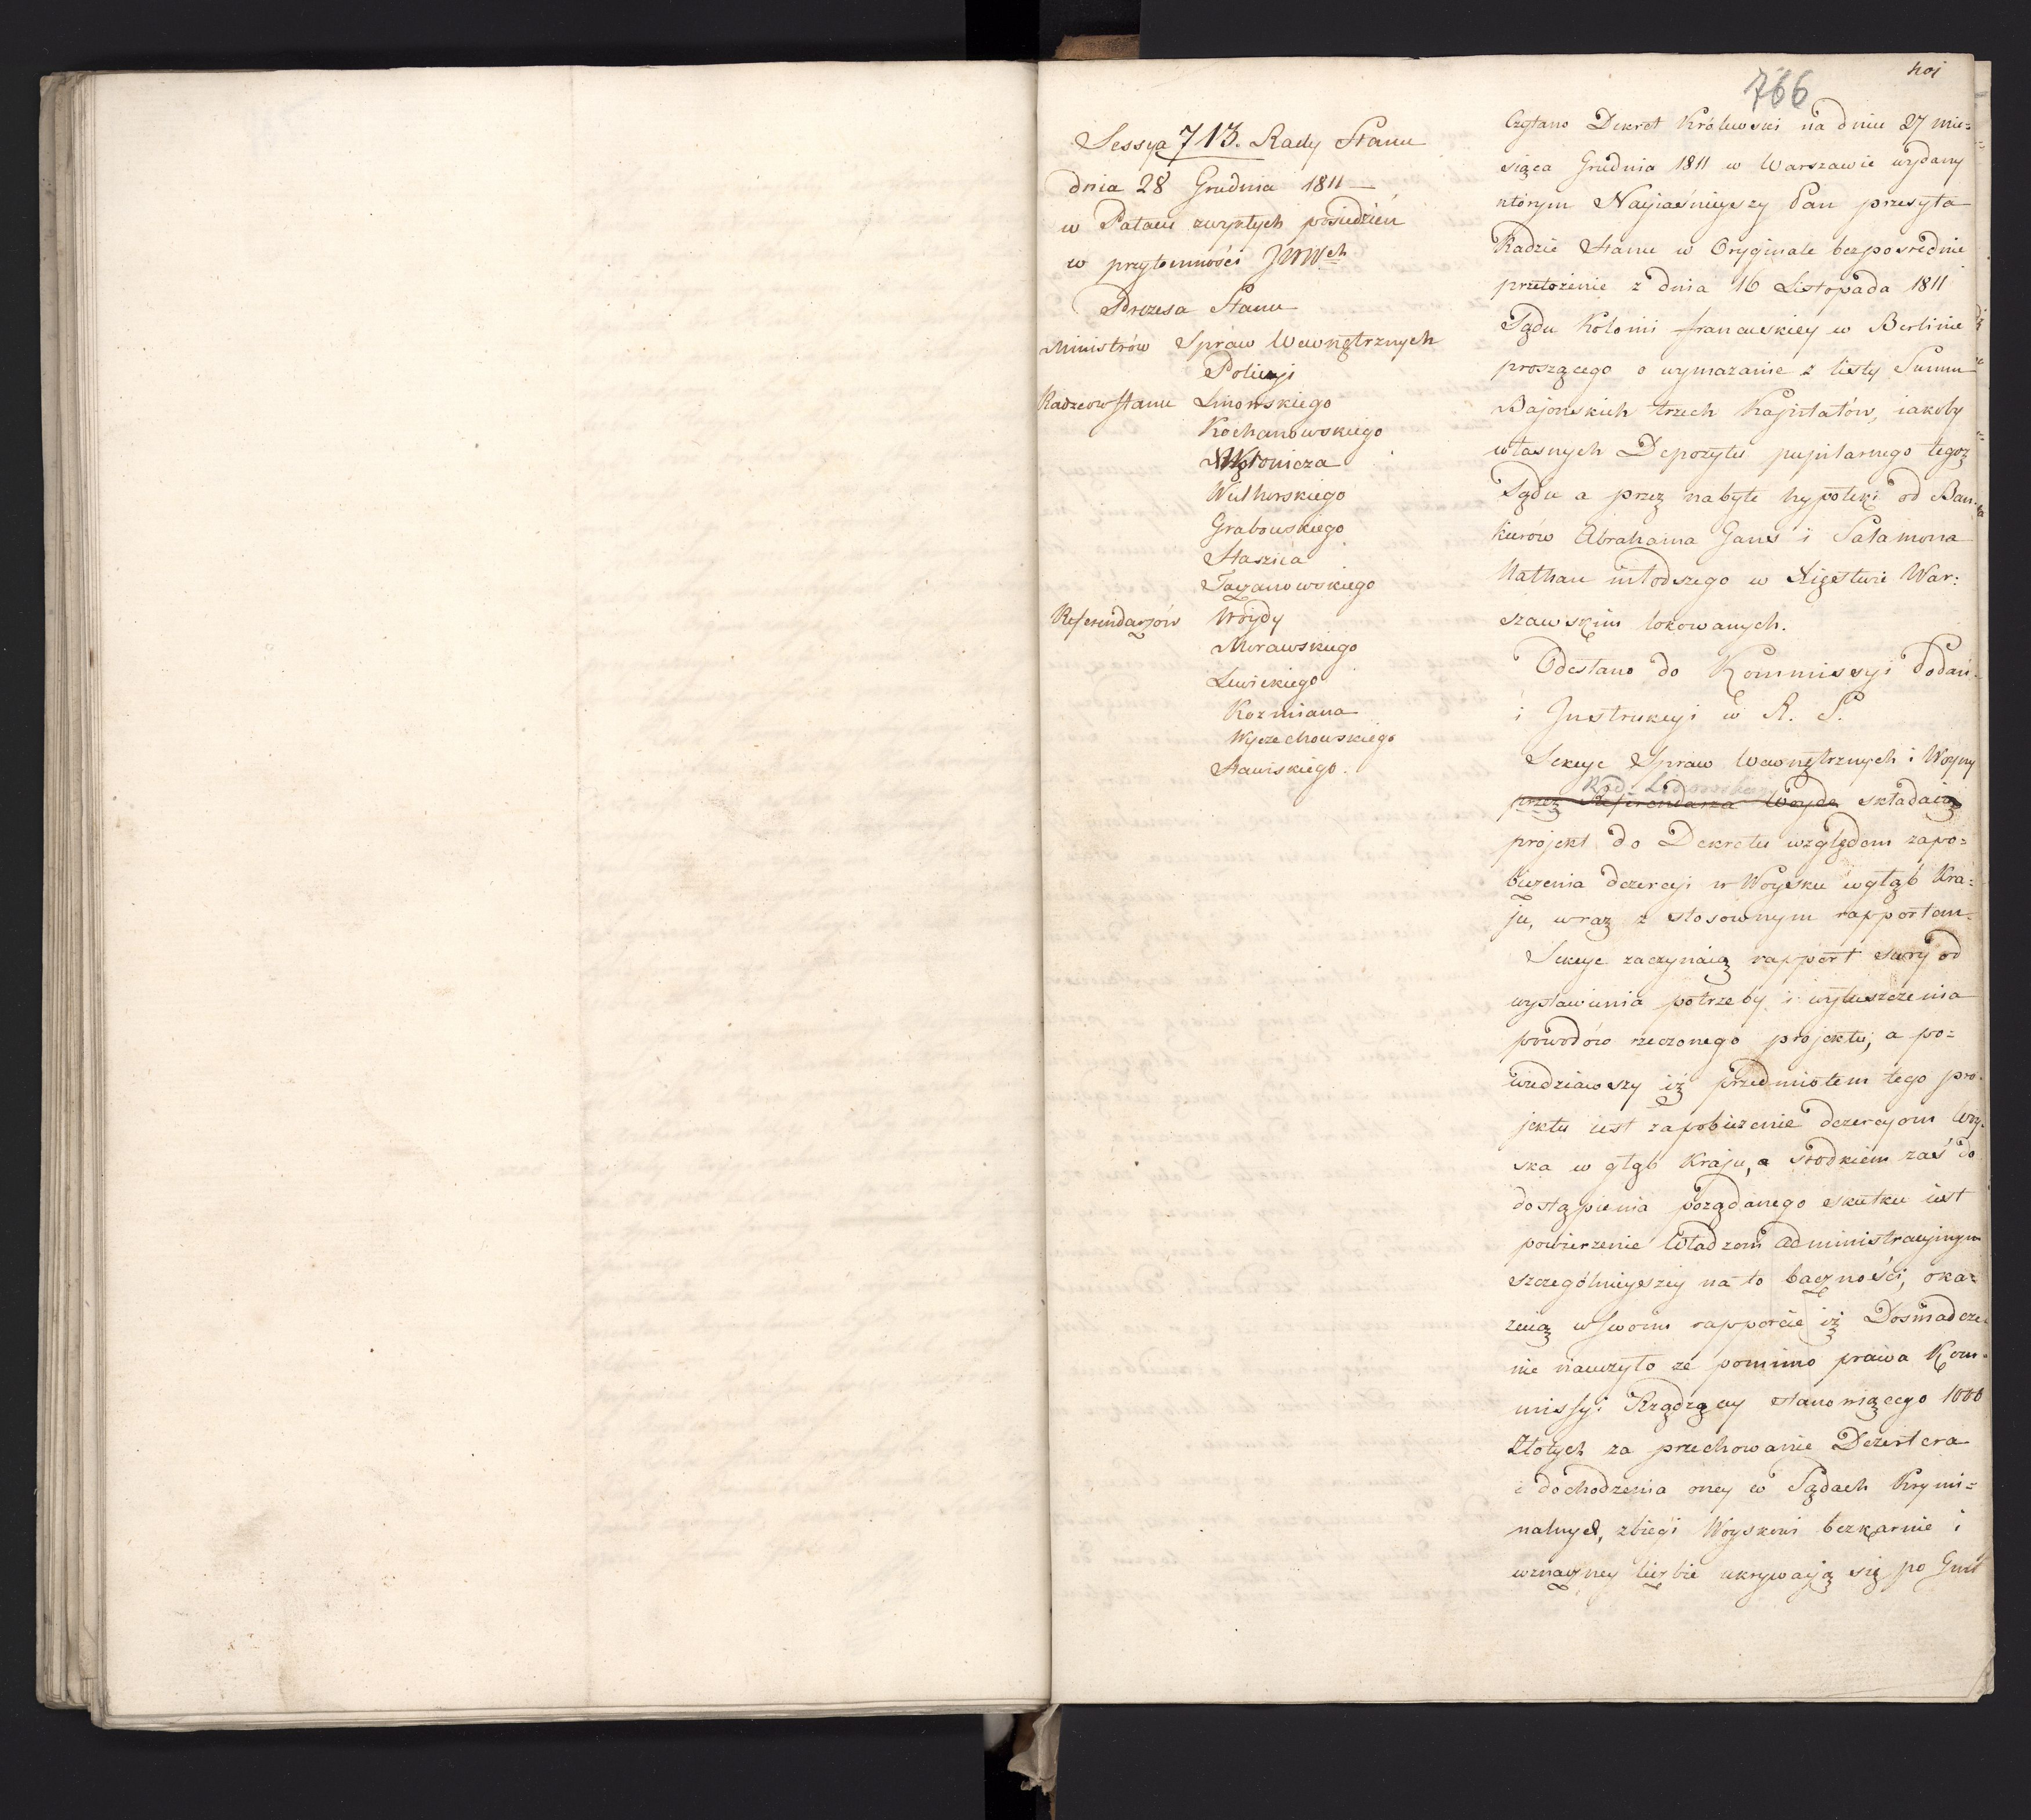 766
401
Sessya 713. Rady Stanu
dnia 28 Grudnia 1811 —
w Pałacu zwykłych posiedzień
w przytomności JWWch
Prezesa Stanu
Ministrów Spraw Wewnętrznych
Policyi
Radzców Stanu Linowskiego
Kochanowskiego
Wielhorskiego
Grabowskiego
Staszica
Taczanowskiego
Referendarzów Woydy
Morawskiego
Lewickiego
Kozmiana
Wyczechowskiego
Stawiskiego.
Czytano Dekret Królewski na dniu 27 mie=
siąca Grudnia 1811 w Warszawie wydany
którym Nayiaśnieyszy Pan przesyła
Radzie Stanu w Oryginale bezpośrednie
przełożenie z dnia 16 Listopada 1811
Sądu Kolonii francuskiey w Berlinie
proszącego o wymazanie z listy Summ
Bajońskich trzech Kapitałów, iakoby
własnych Depozytu pupilarnego tegoz
Sądu a przez nabyte hypoteki od Ban=
kierów Abrahama Gans i Salamona
Nathan młodszego w Xięstwie War:
szawskim lokowanych.
Odesłano do Kommissyi Podań
i Instrukcyi w R. S.
Sekcye Spraw Wewnętrznych i Woyny
Rad. Linowskiego
przez Referendarza Woydę składaią
projekt do Dekretu względem zapo=
bieżenia dezercyi w Woysku wgłąb Kra=
ju, wraz z stosownym rapportem.
Sekcye zaczynaią rapport swóy od
wystawienia potrzeby i wyłuszczenia
powodów rzeczonego projektu; a po=
wiedziawszy iż przedmiotem tego pro=
jektu iest zapobieżenie dezercyom Woy=
ska w głąb Kraju, a środkiem zaś do
dostąpienia pożądanego skutku iest
powierzenie Władzom administracyinym
szczególnieyszey na to baczności, oka=
zuią w swoim rapporcie iż Doświadcze=
nie nauczyło że pomimo prawa Kom=
missyi Rządzącey stanowiącego 1000
Złotych za przechowanie Dezertera
i dochodzenia oney w Sądach Krymi=
nalnych, zbiegi Woyskowi bezkarnie i
wznaczney liczbie ukrywaią się po Gmi